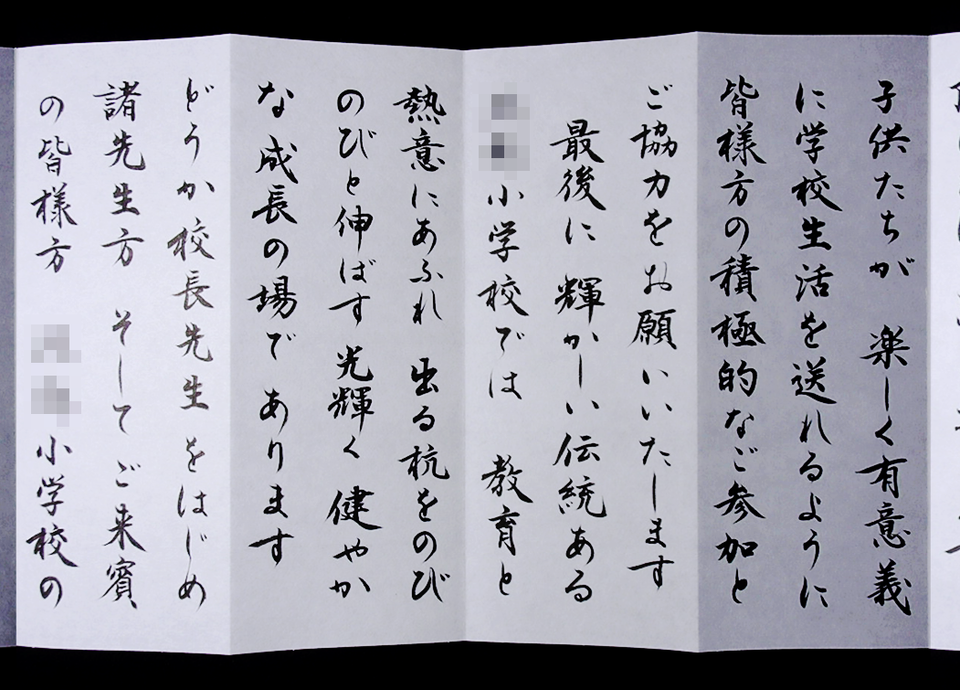 子供たちが 楽しく有意義
に学校生活を送れるように
皆様方の積極的なご参加と
ご協力をお願いいたします
最後に 輝かしい伝統ある
小学校では 教育と
熱意にあふれ 出る杭をのび
のびと伸ばす光輝く 健やか
な成長の場で あります
どうか校長先生をはじめ
諸先生方 そして ご来賓
の皆様方 小学校の